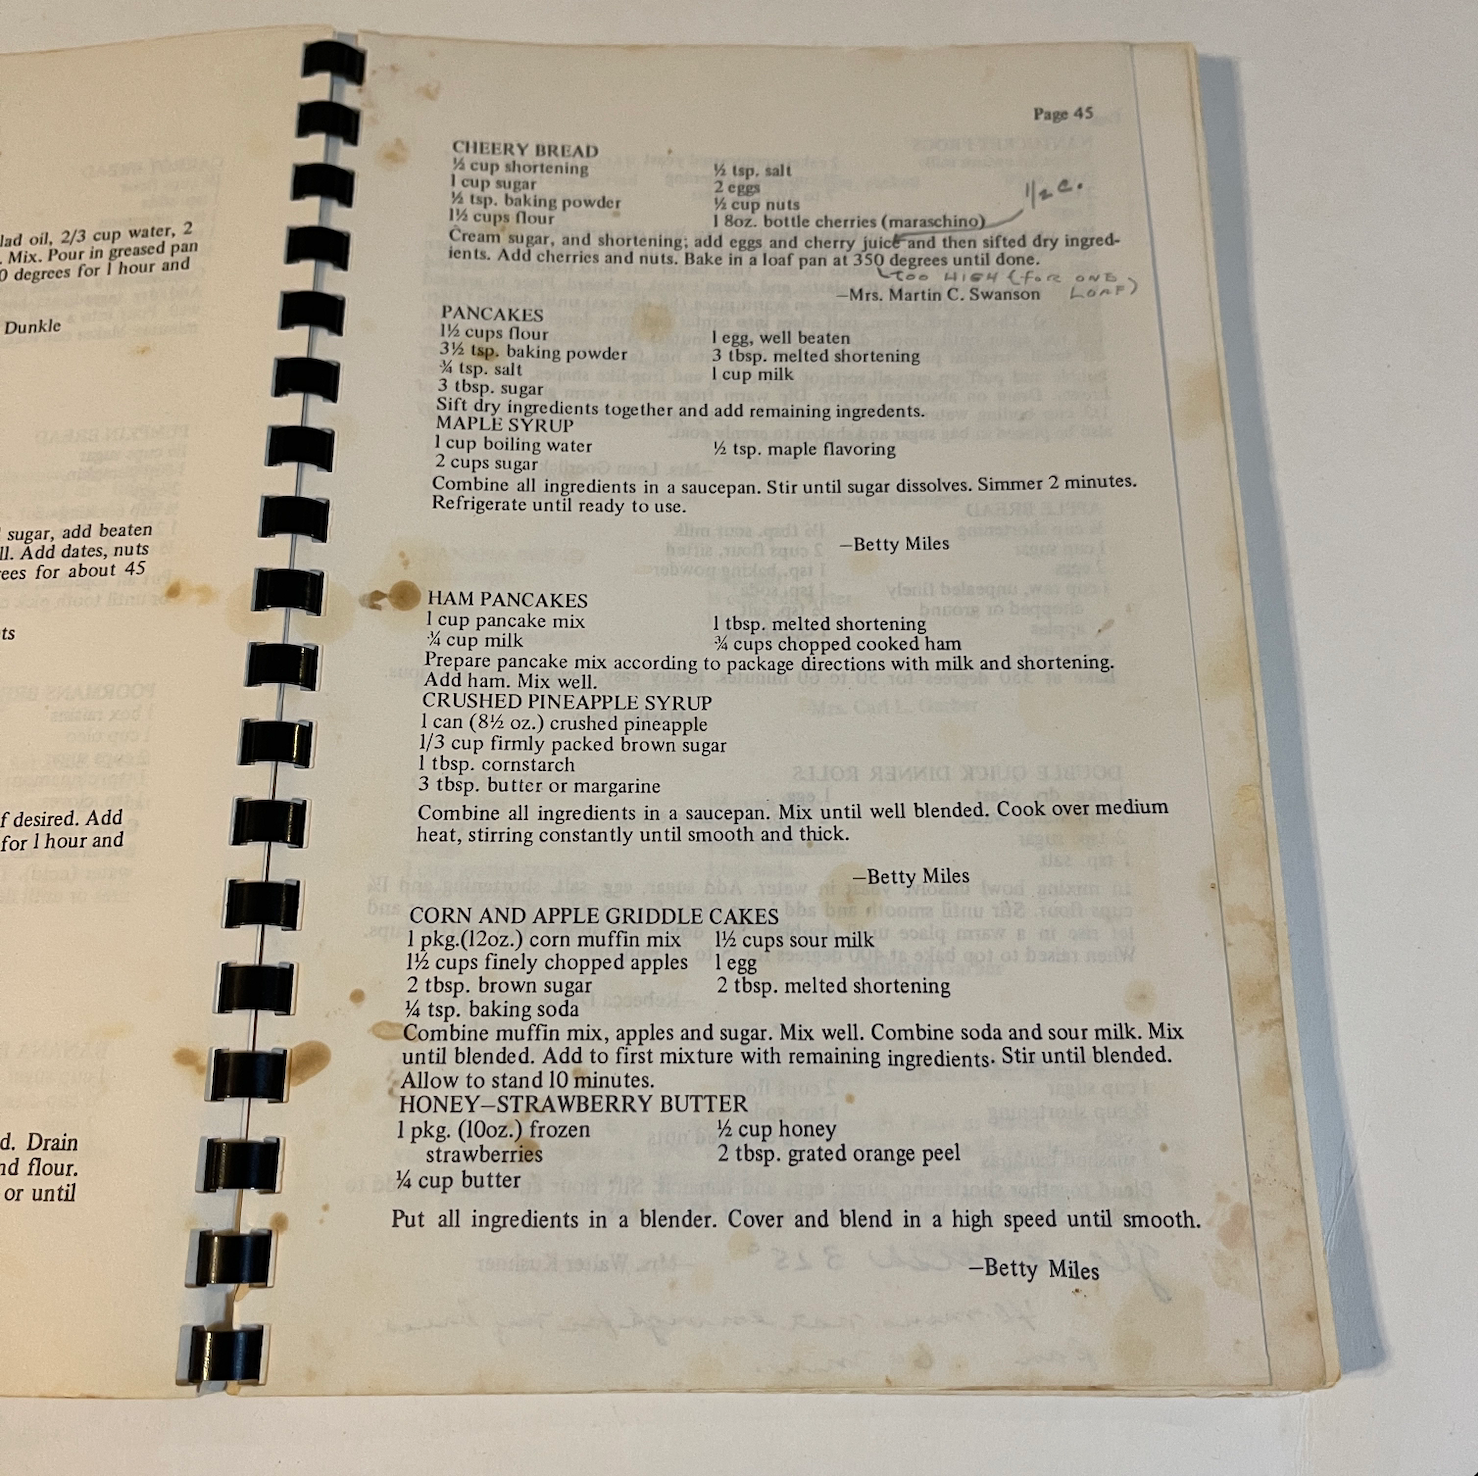 lad oil, 2/3 cup water, 2
. Mix. Pour in greased pan
0 degrees for 1 hour and
Dunkle
sugar, add beaten
ll. Add dates, nuts
rees for about 45
ts
f desired. Add
for 1 hour and
d. Drain
nd flour.
or until
Page 45
CHEERY BREAD
½ cup shortening ½ tsp. salt
1 cup sugar 2 eggs
½ tsp. baking powder ½ cup nuts
1½ cups flour 1 8oz. bottle cherries (maraschino) 1/2 c.
Cream sugar, and shortening; add eggs and cherry juice and then sifted dry ingred-
ients. Add cherries and nuts. Bake in a loaf pan at 350 degrees until done.
TOO HIGH (FOR ONE
LOAF)
—Mrs. Martin C. Swanson
PANCAKES
1½ cups flour 1 egg, well beaten
3½ tsp. baking powder 3 tbsp. melted shortening
¾ tsp. salt 1 cup milk
3 tbsp. sugar
Sift dry ingredients together and add remaining ingredents.
MAPLE SYRUP
1 cup boiling water ½ tsp. maple flavoring
2 cups sugar
Combine all ingredients in a saucepan. Stir until sugar dissolves. Simmer 2 minutes.
Refrigerate until ready to use.
—Betty Miles
HAM PANCAKES
1 cup pancake mix 1 tbsp. melted shortening
¾ cup milk ¾ cups chopped cooked ham
Prepare pancake mix according to package directions with milk and shortening.
Add ham. Mix well.
CRUSHED PINEAPPLE SYRUP
1 can (8½ oz.) crushed pineapple
1/3 cup firmly packed brown sugar
1 tbsp. cornstarch
3 tbsp. butter or margarine
Combine all ingredients in a saucepan. Mix until well blended. Cook over medium
heat, stirring constantly until smooth and thick.
—Betty Miles
CORN AND APPLE GRIDDLE CAKES
1 pkg.(12oz.) corn muffin mix 1½ cups sour milk
1½ cups finely chopped apples 1 egg
2 tbsp. brown sugar 2 tbsp. melted shortening
¼ tsp. baking soda
Combine muffin mix, apples and sugar. Mix well. Combine soda and sour milk. Mix
until blended. Add to first mixture with remaining ingredients. Stir until blended.
Allow to stand 10 minutes.
HONEY—STRAWBERRY BUTTER
1 pkg. (10oz.) frozen ½ cup honey
strawberries 2 tbsp. grated orange peel
¼ cup butter
Put all ingredients in a blender. Cover and blend in a high speed until smooth.
—Betty Miles